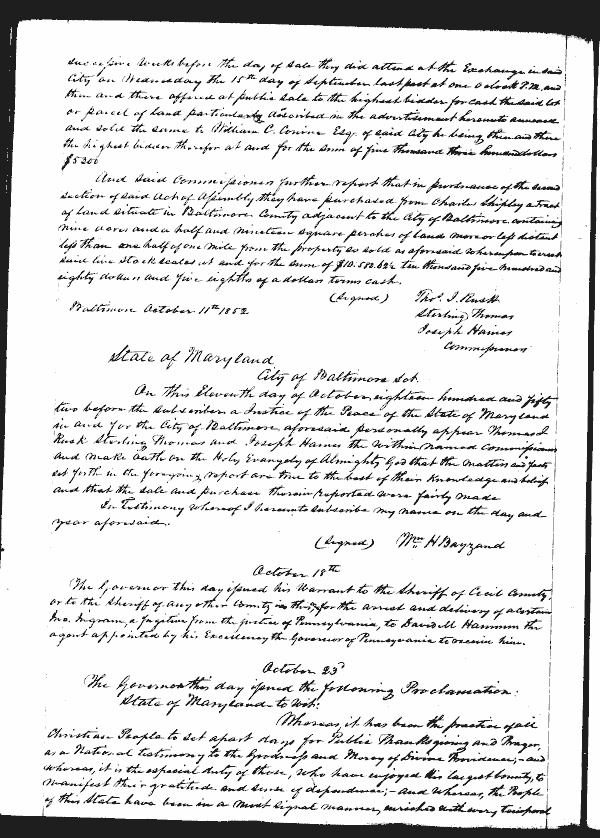 successive weeks before the day of sale they did attend at the Exchange in said
City on Wednesday the 15th day of September last past at one O'clock P.M. and
then and there offered at public sale to the highest bidder for cash the said lot
or parcel of land particularly described in the advertisement hereunto annexed
and sold the same to William C. Conine Esq. of said City he being then and there
the highest bidder therefor at and for the sum of five thousand three hundred dollars
$5300
And said Commissioners further report that in pursuance of the second
section of said Act of Assembly they have purchased from Charles Shipley a tract
of land situate in Baltimore County adjacent to the City of Baltimore containing
nine acres and a half and nineteen square perches of land more or less distant
less than one half of one mile from the property so sold as aforesaid whereupon to erect
said live stock scales at and for the sum of $10.580.62½ ten thousand five hundred and
eighty dollars and five eighths of a dollar terms cash.
(Signed) Thos. J. Rusk
Baltimore October 11th 1852
Sterling Thomas
Joseph Haines
Commissioners
State of Maryland
City of Baltimore Sct.
On this Eleventh day of October, eighteen hundred and fifty
two before the subscriber a Justice of the Peace of the State of Maryland
in and for the City of Baltimore aforesaid personally appear Thomas J.
Rusk Sterling Thomas and Joseph Haines the within named Commissioners
and make Oath on the Holy Evangely of Almighty God that the matters and facts
set forth in the foregoing report are true to the best of their Knowledge and belief
and that the sale and purchase therein reported were fairly made
In Testimony whereof I hereunto subscribe my name on the day and
year aforesaid.
(Signed) Wm. H Bayzand
October 18th
The Governor this day issued his Warrant to the Sheriff of Cecil County,
or to the Sheriff of any other County in the for the arrest and delivery of a certain
Jno. Ingram, a fugitive from the justice of Pennsylvania, to David M Hannum the
agent appointed by his Excellency the Governor of Pennsylvania to receive him.
October 23d
The Governor this day issued the following Proclamation:
State of Maryland to Wit:
Whereas, it has been the practice of all
Christian People to set apart days for Public Thanksgiving and Prayer,
as a National testimony to the Goodness and Mercy of Divine Providence;- and
whereas, it is the especial duty of those, who have enjoyed his largest bounty, to
manifest their gratitude and sense of dependence;- and whereas, the People
of this State have been in a most signal manner, enriched with every temporal